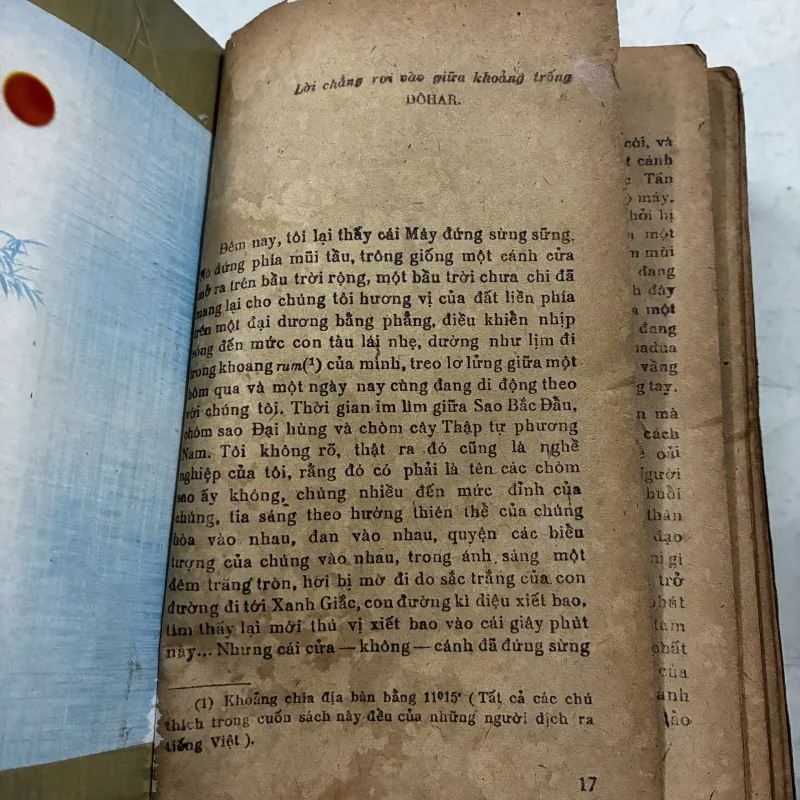 Lời chẳng rơi vào giữa khoảng trống
ĐÔHAR.
Đêm nay, tôi lại thấy cái Máy đứng sừng sững.
Nó đứng phía mũi tầu, trông giống một cánh cửa
mở ra trên bầu trời rộng, một bầu trời chưa chi đã
mang lại cho chúng tôi hương vị của đất liền phía
trên một đại dương bằng phẳng, điều khiển nhịp
sóng đến mức con tàu lái nhẹ, dường như lịm đi
trong khoang rum(¹) của mình, treo lơ lửng giữa một
hôm qua và một ngày nay cùng đang di động theo
với chúng tôi. Thời gian im lìm giữa Sao Bắc Đẩu,
chòm sao Đại hùng và chòm cây Thập tự phương
Nam. Tôi không rõ, thật ra đó cũng là nghề
nghiệp của tôi, rằng đó có phải là tên các chòm
sao ấy không, chúng nhiều đến mức đỉnh của
chúng, tia sáng theo hướng thiên thể của chúng
hòa vào nhau, đan vào nhau, quyện các biểu
tượng của chúng vào nhau, trong ánh sáng một
đêm trăng tròn, hơi bị mờ đi do sắc trắng của con
đường đi tới Xanh Giắc, con đường kì diệu xiết bao,
tìm thấy lại mới thú vị xiết bao vào cái giây phút
này... Nhưng cái cửa — không — cánh đã đứng sừng
(1) Khoảng chia địa bàn bằng 11º15' (Tất cả các chú
thích trong cuốn sách này đều của những người dịch ra
tiếng Việt).
17
còi, và
t cánh
Tần
máy.
hởi bị
một
mùi
đang
h đây
a một
đang
vầng
g tay.
n mà
cách
oải
gười
buổi
thân
đạo
ni gì
trở
phát
tâm
phất
của
ảnh
lảo